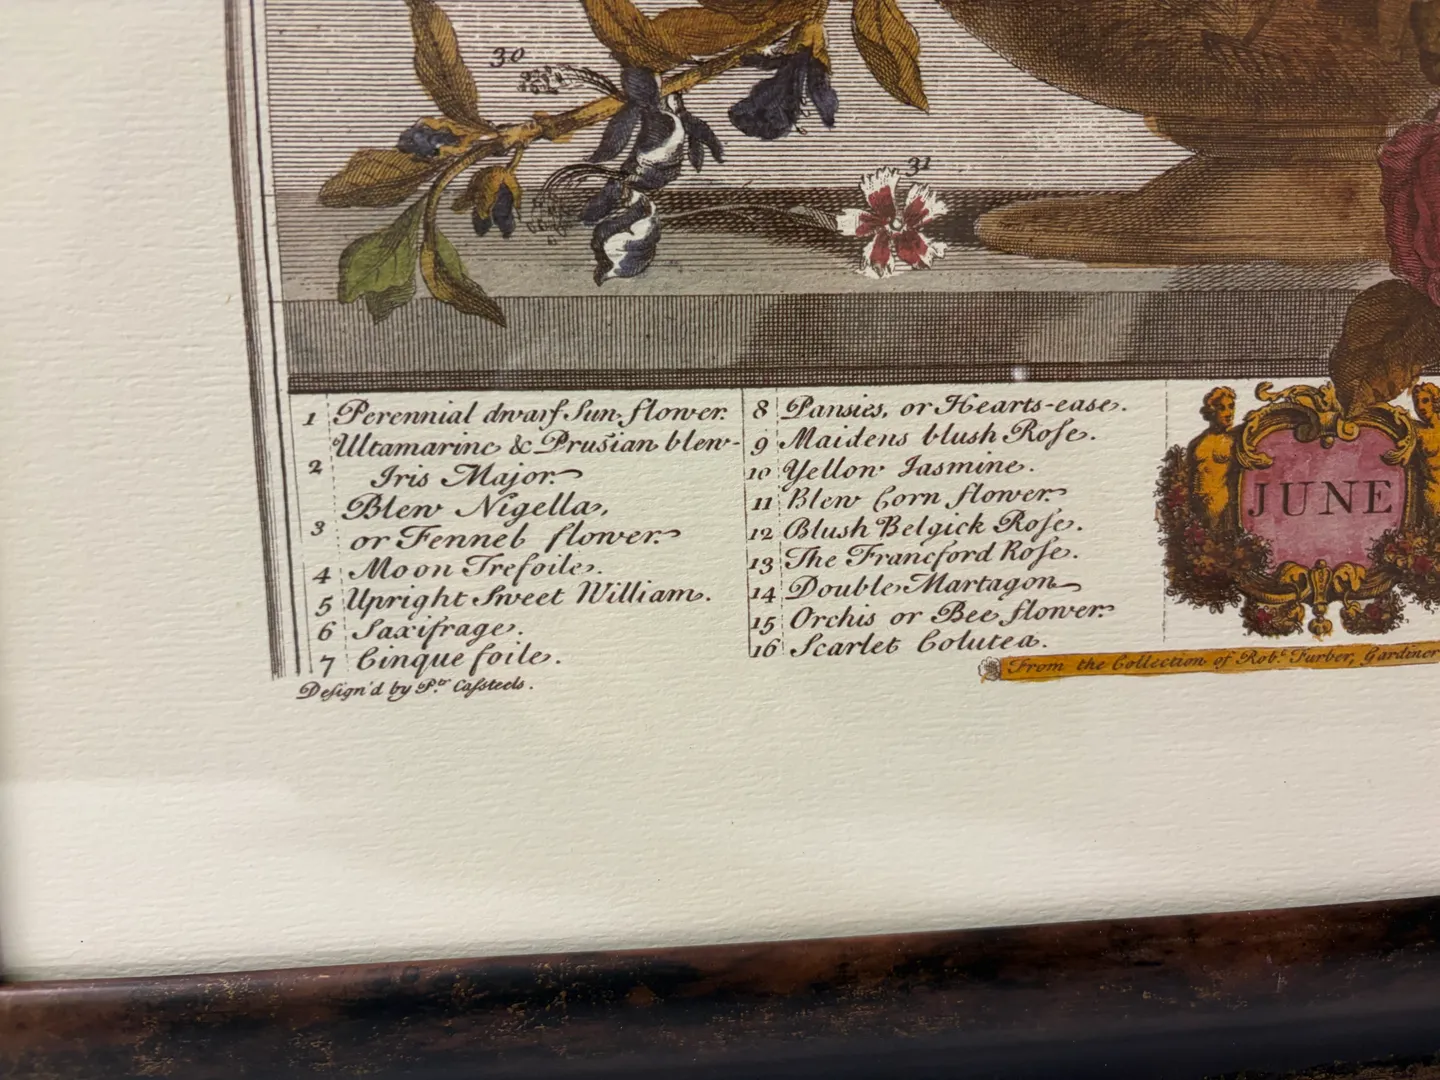 30
31
1 Perennial dwarf Sun-flower.
Ultamarine & Prusian blew-
2
Iris Major.
Blew Nigella,
3
or Fennel flower.
4 Moon Trefoile.
5 Upright Sweet William.
6 Saxifrage.
7 Cinquefoile.
8 Pansies, or Hearts-ease.
9 Maidens blush Rose.
10 Yellow Jasmine.
11 Blew Corn flower.
12 Blush Belgick Rose.
13 The Francford Rose.
14 Double Martagon
15 Orchis or Bee flower.
16 Scarlet Colutea.
JUNE
From the Collection of Robt. Furber, Gardiner
Design'd by Ptr Casteels.